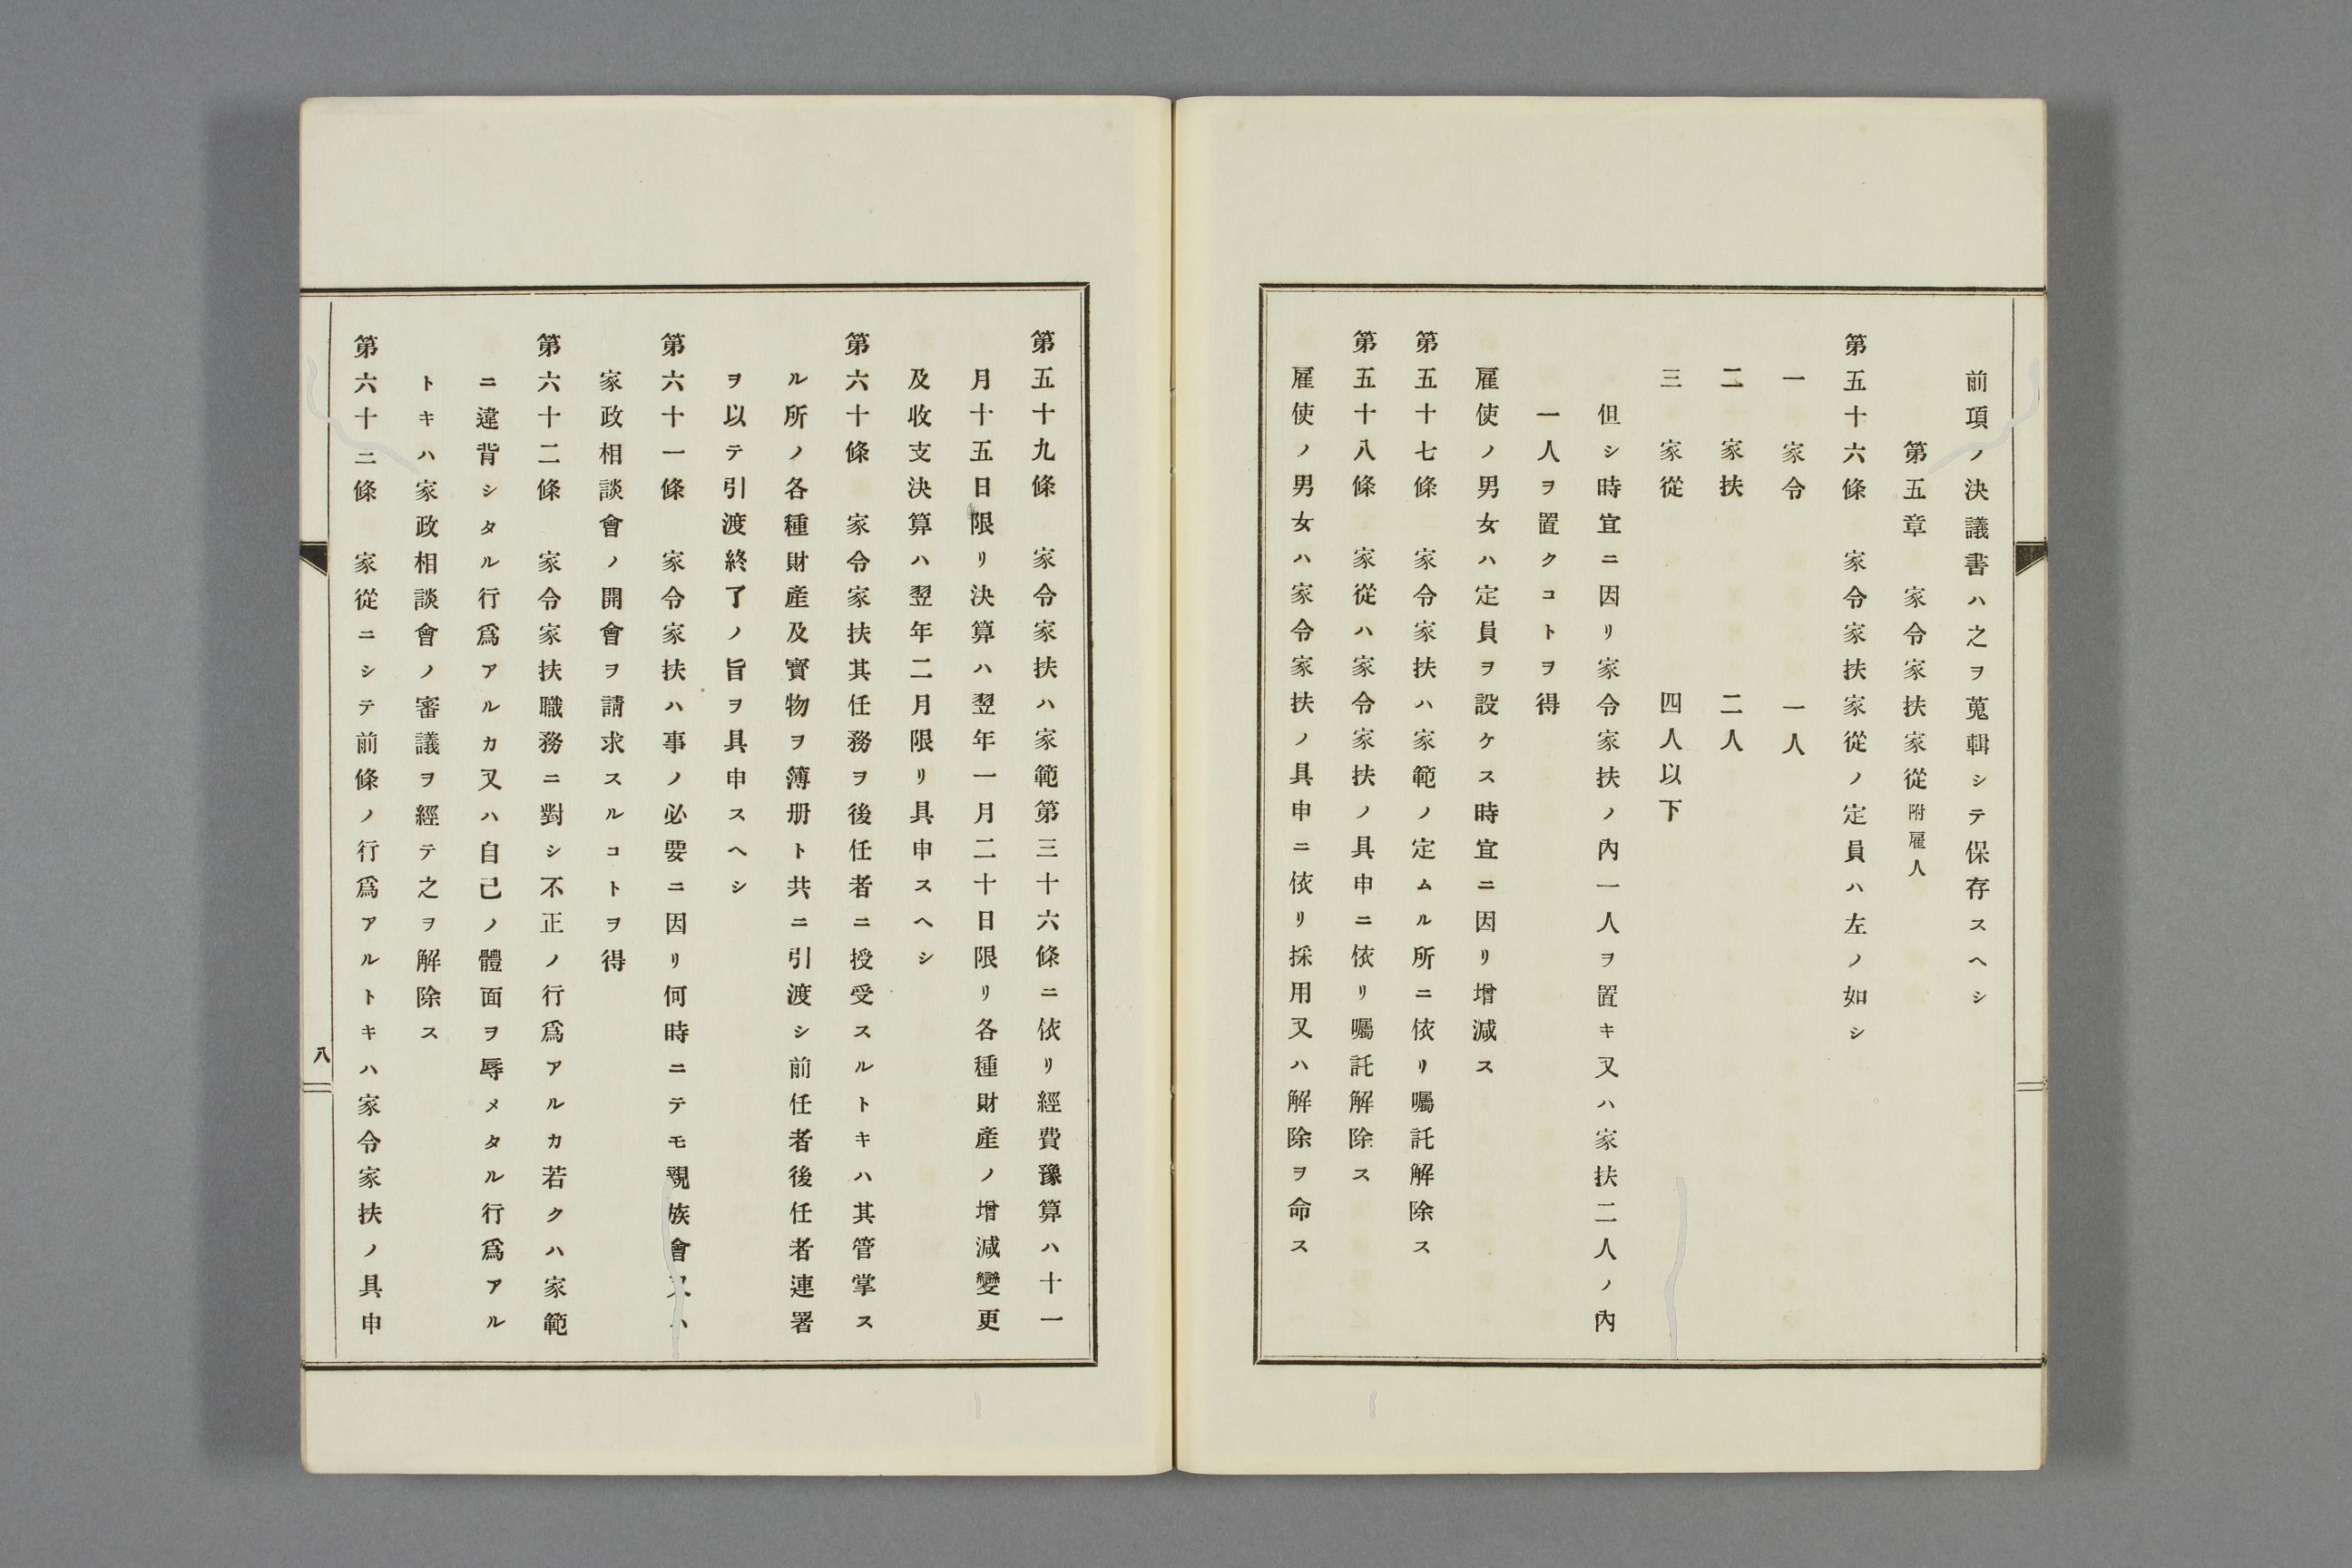 前項ノ決議書ハ之ヲ蒐輯シテ保存スヘシ
第五章　家令家扶家從附雇人
第五十六條　家令家扶家從ノ定員ハ左ノ如シ
一　家令　一人
二　家扶　二人
三　家從　四人以下
但シ時宜ニ因リ家令家扶ノ內一人ヲ置キ又ハ家扶二人ノ內
一人ヲ置クコトヲ得
雇使ノ男女ハ定員ヲ設ケス時宜ニ因リ增減ス
第五十七條　家令家扶ハ家範ノ定ムル所ニ依リ囑託解除ス
第五十八條　家從ハ家令家扶ノ具申ニ依リ囑託解除ス
雇使ノ男女ハ家令家扶ノ具申ニ依リ採用又ハ解除ヲ命ス
第五十九條　家令家扶ハ家範第三十六條ニ依リ經費豫算ハ十一
月十五日限リ決算ハ翌年一月二十日限リ各種財產ノ增減變更
及收支決算ハ翌年二月限リ具申スヘシ
第六十條　家令家扶其任務ヲ後任者ニ授受スルトキハ其管掌ス
ル所ノ各種財產及寶物ヲ簿册ト共ニ引渡シ前任者後任者連署
ヲ以テ引渡終了ノ旨ヲ具申スヘシ
第六十一條　家令家扶ハ事ノ必要ニ因リ何時ニテモ親族會又ハ
家政相談會ノ開會ヲ請求スルコトヲ得
第六十二條　家令家扶職務ニ對シ不正ノ行爲アルカ若クハ家範
ニ違背シタル行爲アルカ又ハ自己ノ體面ヲ辱メタル行爲アル
トキハ家政相談會ノ審議ヲ經テ之ヲ解除ス
第六十三條　家從ニシテ前條ノ行爲アルトキハ家令家扶ノ具申
八